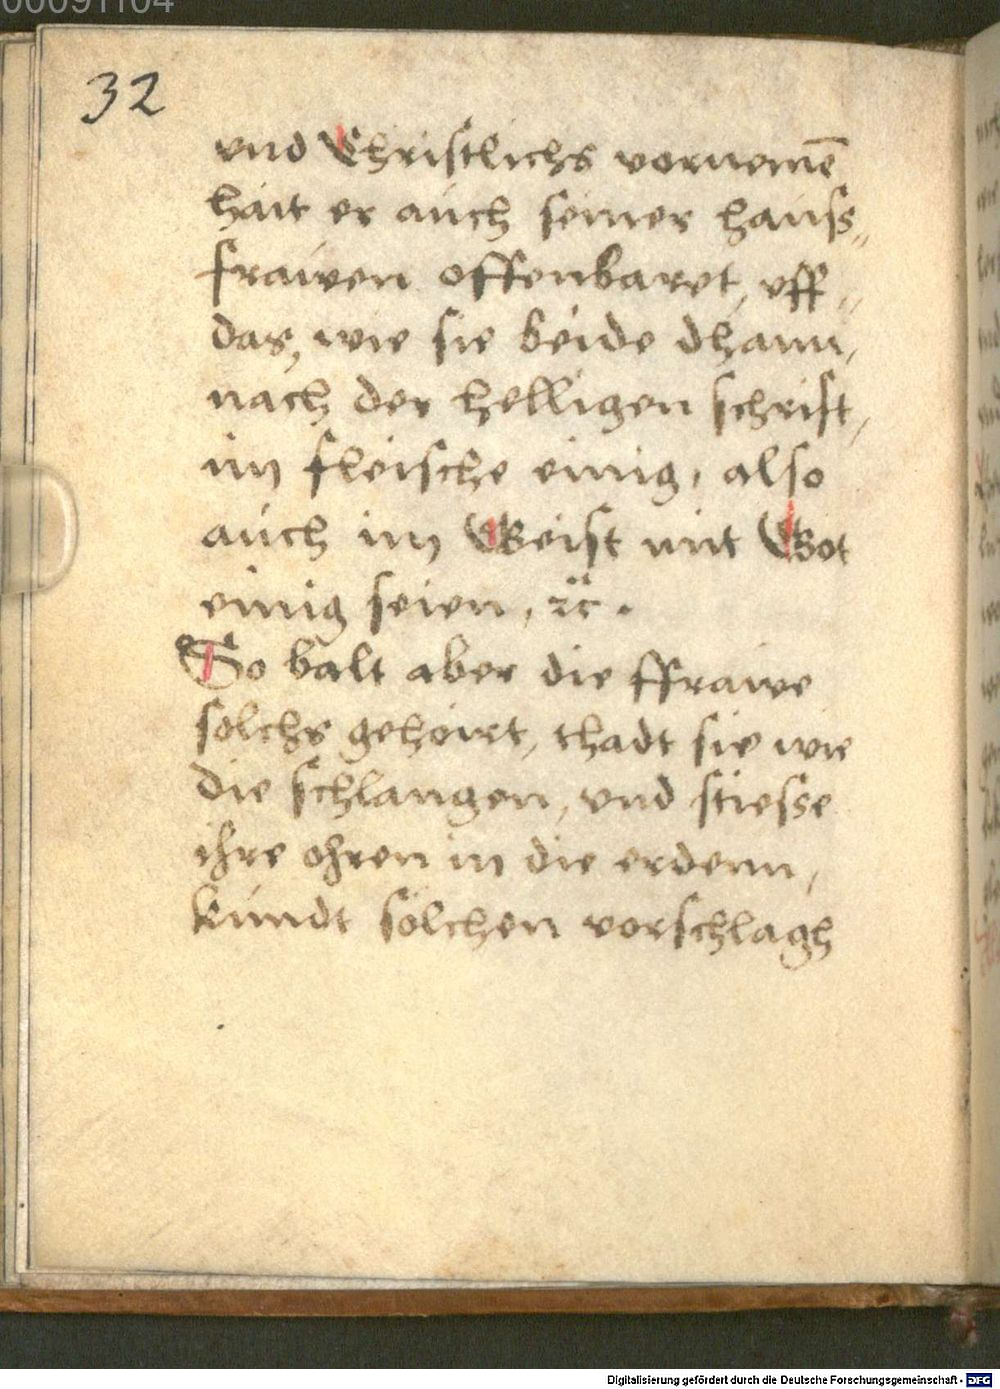 00091104
32
vnd Christlichs vornemē
hait er auch seiner hauss„
frawen offenbaret, vff„
das, wie sie beide dhann,
nach der helligen schrift,
im fleische einig, also
auch im Geist mit Got
einig seien, ꝛc.
So balt aber die ffrawe
solchs gehoirt, thadt sie wie
die schlangen, vnd stiesse
ihre ohren in die erdenn,
kundt solchen vorschlagh
Digitalisierung gefördert durch die Deutsche Forschungsgemeinschaft - DFG